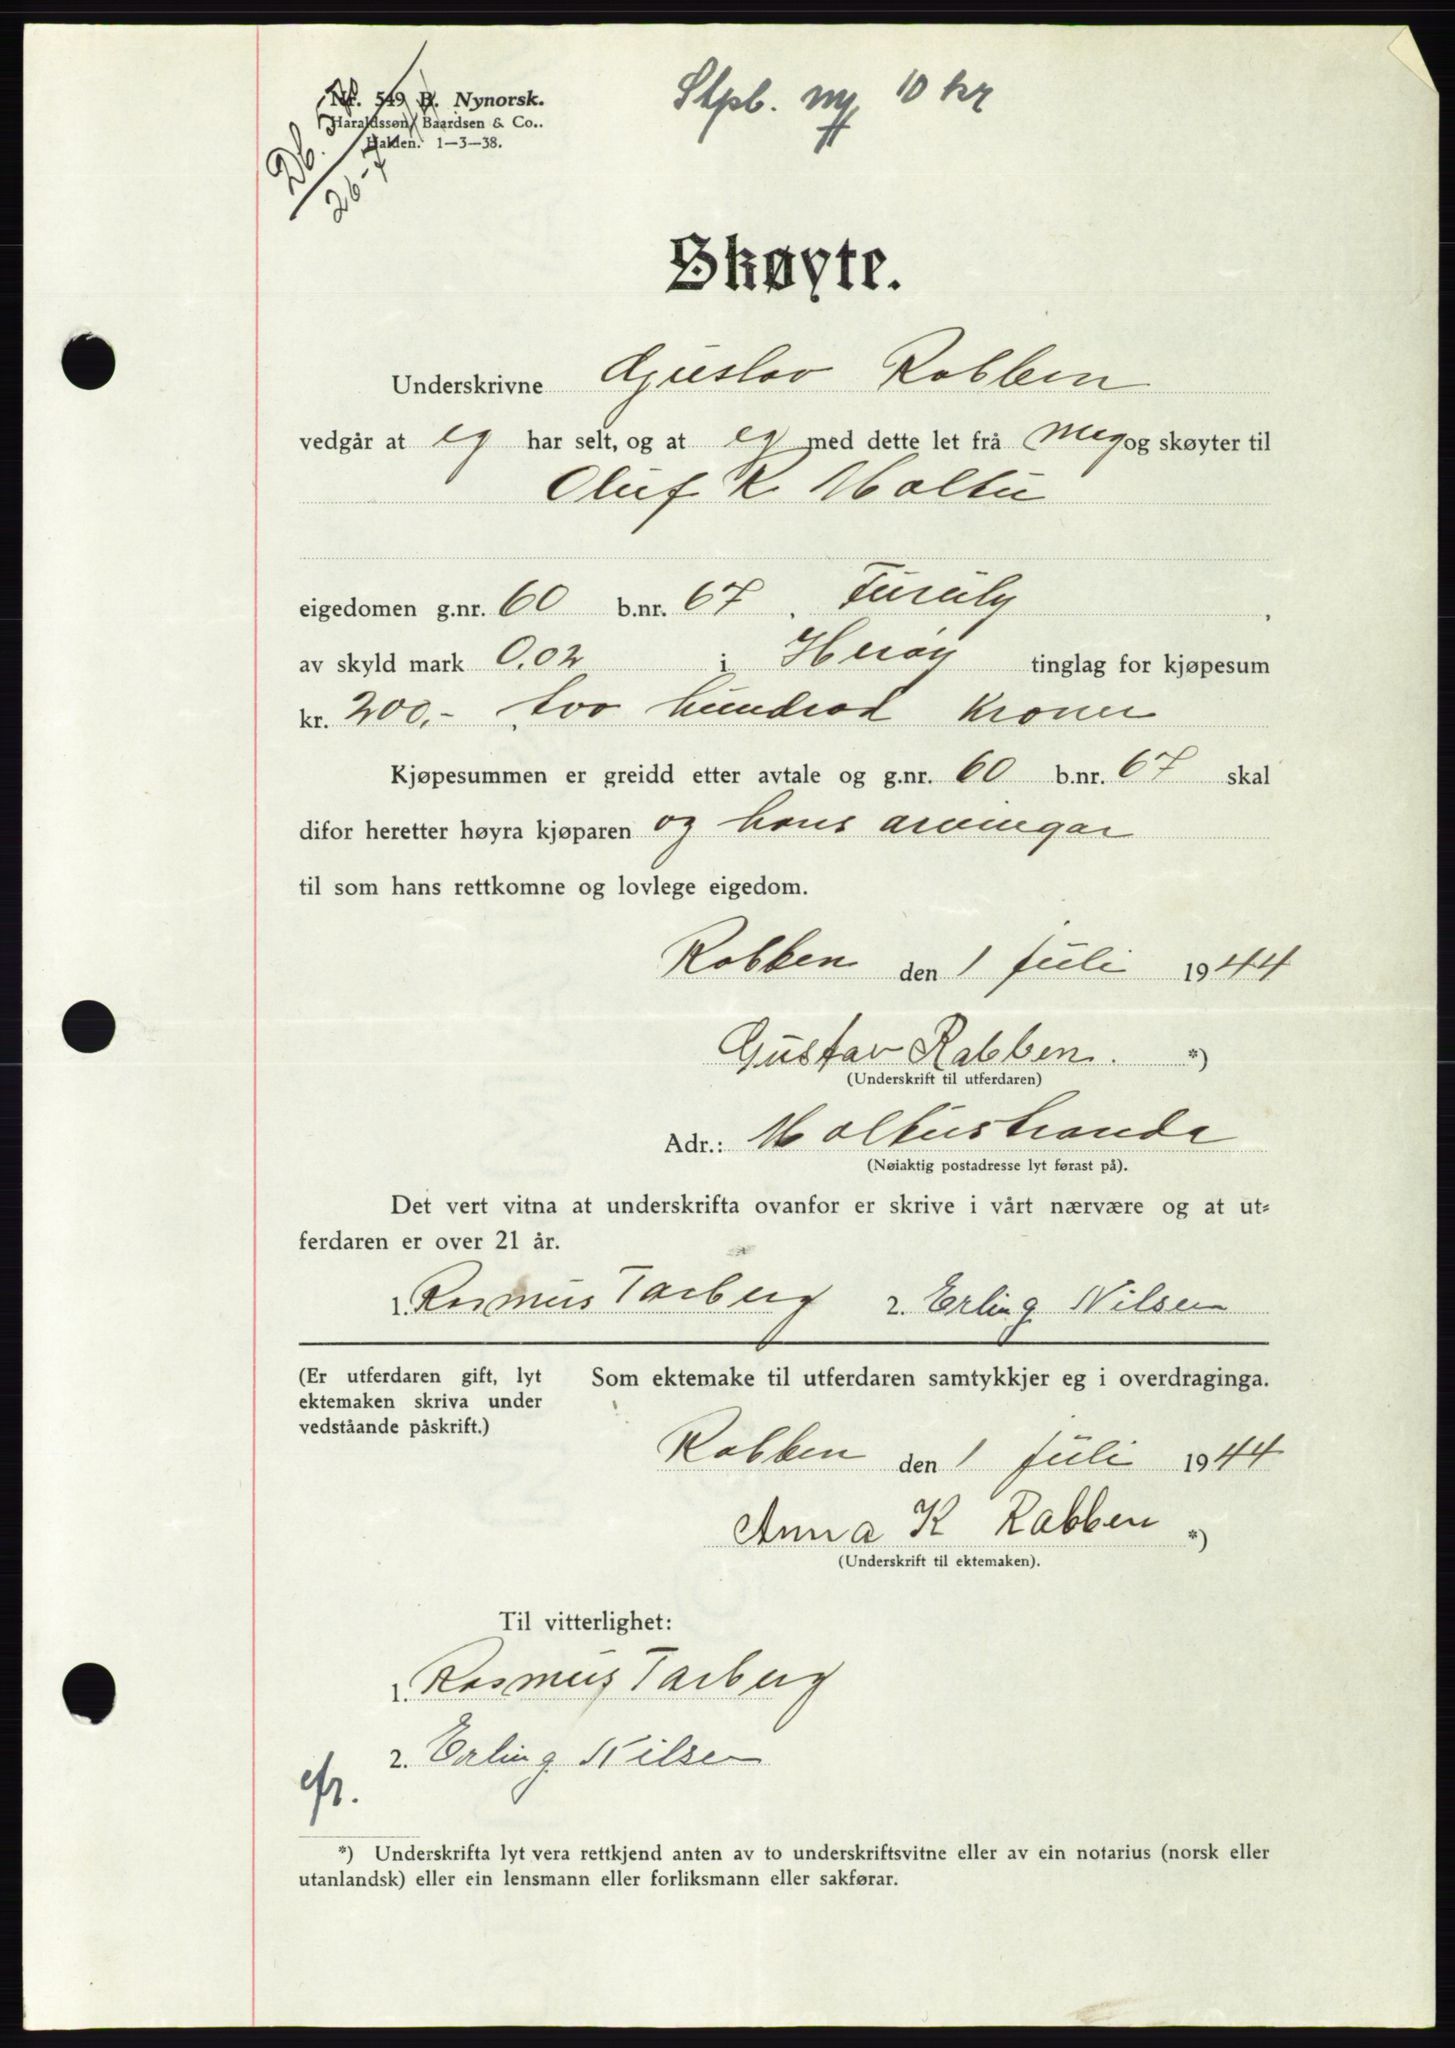 Stpb. ny 10 kr
Nr. 549 B. Nynorsk.
Haraldssøn, Baardsen & Co..
Halden. 1—3—38.
Db.
26-7
Skøyte.
Underskrivne Gustav Robben
vedgår at eg har selt, og at eg med dette let frå meg og skøyter til
Oluf K Moltu
eigedomen g.nr. 60 b.nr. 67. Furuly,
av skyld mark 0,02 i Herøy tinglag for kjøpesum
kr. 200,- tvo hundrad Kroner
Kjøpesummen er greidd etter avtale og g.nr. 60 b.nr. 67 skal
difor heretter høyra kjøparen og hans arvingar
til som hans rettkomne og lovlege eigedom.
Robben den 1 juli 1944
Gustav Rabben. *)
(Underskrift til utferdaren)
Adr.: Moltustranda
(Nøiaktig postadresse lyt førast på).
Det vert vitna at underskrifta ovanfor er skrive i vårt nærvære og at ut=
ferdaren er over 21 år.
1. Rasmus Tarberg 2. Erling Nilsen
(Er utferdaren gift, lyt
ektemaken skriva under
vedståande påskrift.)
Som ektemake til utferdaren samtykkjer eg i overdraginga.
Robben den 1 juli 1944
Anna K Rabben *)
(Underskrift til ektemaken).
Til vitterlighet:
1. Rasmus Tarberg
2. Erling Nilsen
efr.
*) Underskrifta lyt vera rettkjend anten av to underskriftsvitne eller av ein notarius (norsk eller
utanlandsk) eller ein lensmann eller forliksmann eller sakførar.